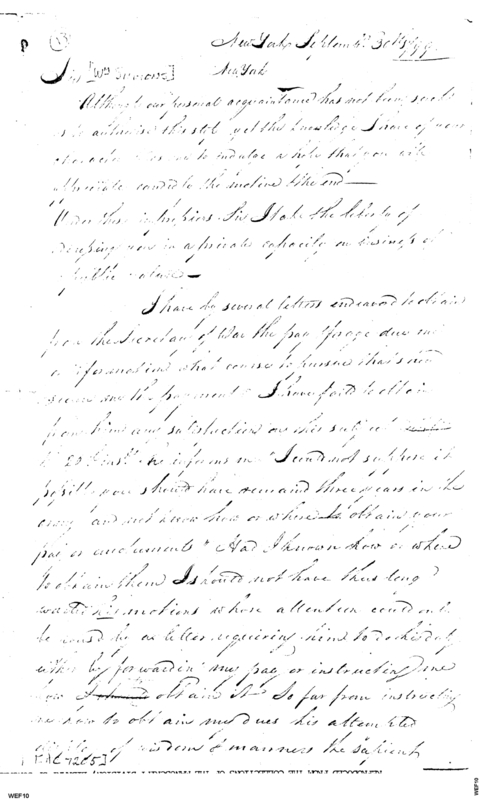 (13)
New York September 30th 1799
Sir [Wm Simmons] New York
Although our personal acquaintance has not been such
as to authorise this step yet the knowledge I have of your
character me to indulge a hope that you will
appreciate candidly the motive & the end —
Under these impressions Sir I take the liberty of
you in a private capacity on business of
public nature —
I have by several letters endeavord to obtain
from the Secretary of War the pay & forage due me
or information what course to pursue that
me the payment I have faild to obtain
from him any satisfaction on this subject
he informs me "I cannot suppose it
possible you should have remaind three years in the
army and not know how or where to obtain your
pay or emoluments" Had I known how or where
to obtain them I should not have thus long
waited his motions whose attention could only
be rousd by a letter requiring him to do his duty
either by forwarding my pay or instructing me
how I should obtain it So far from instructing
me how to obtain my dues his attempted
of wisdom & manners the sapient
[RAC 7265]
WEF10
WEF10